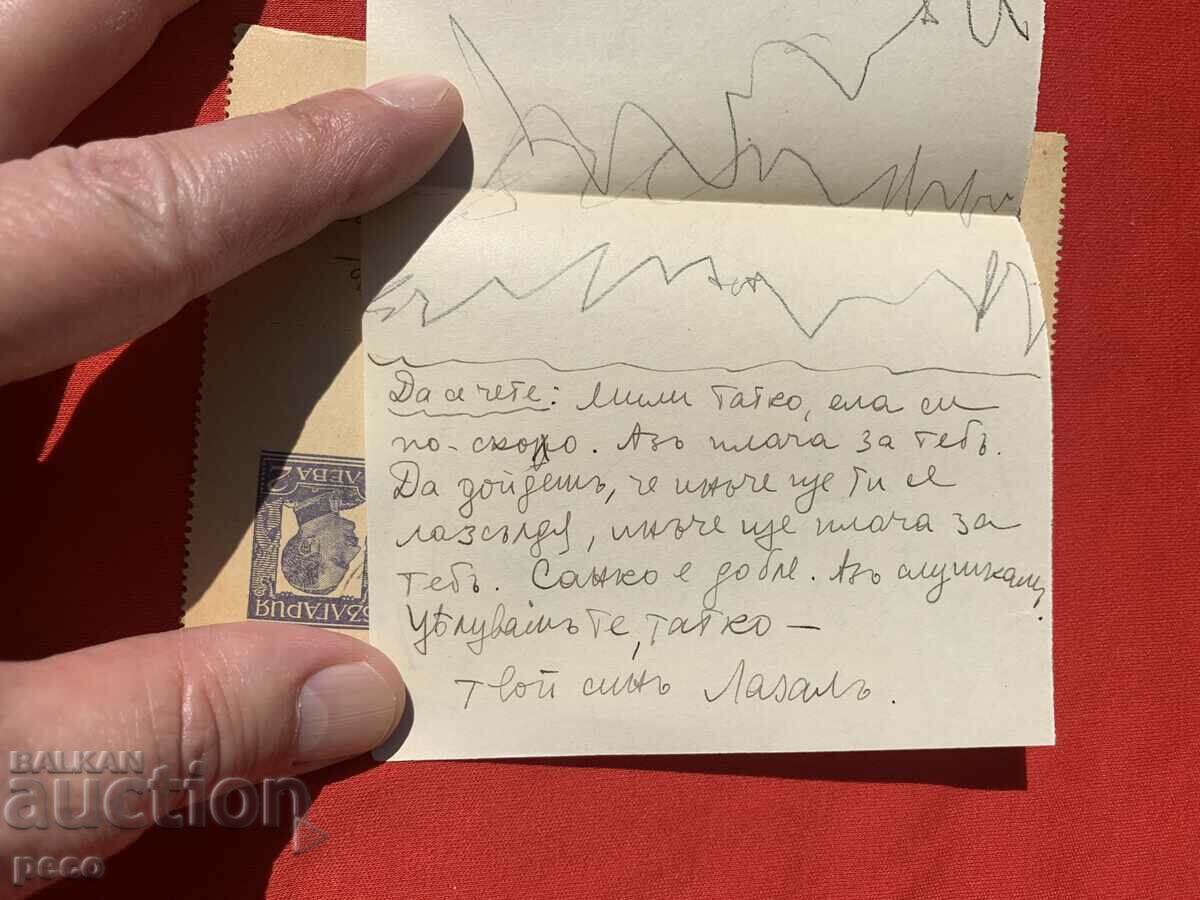 Да се чете: Мили татко, ела си
по-сколо. Азъ плача за тебъ.
Да дойдешъ, че иначе ще ти се
лазсълдя, иначе ще плача за
тебъ. Санко е добле. Азъ слушкамъ.
Цѣлувамъ те, татко –
твой синъ Лазалъ.
2 ЛЕВА
БЪЛГАРИЯ
BALKAN
auction
peco